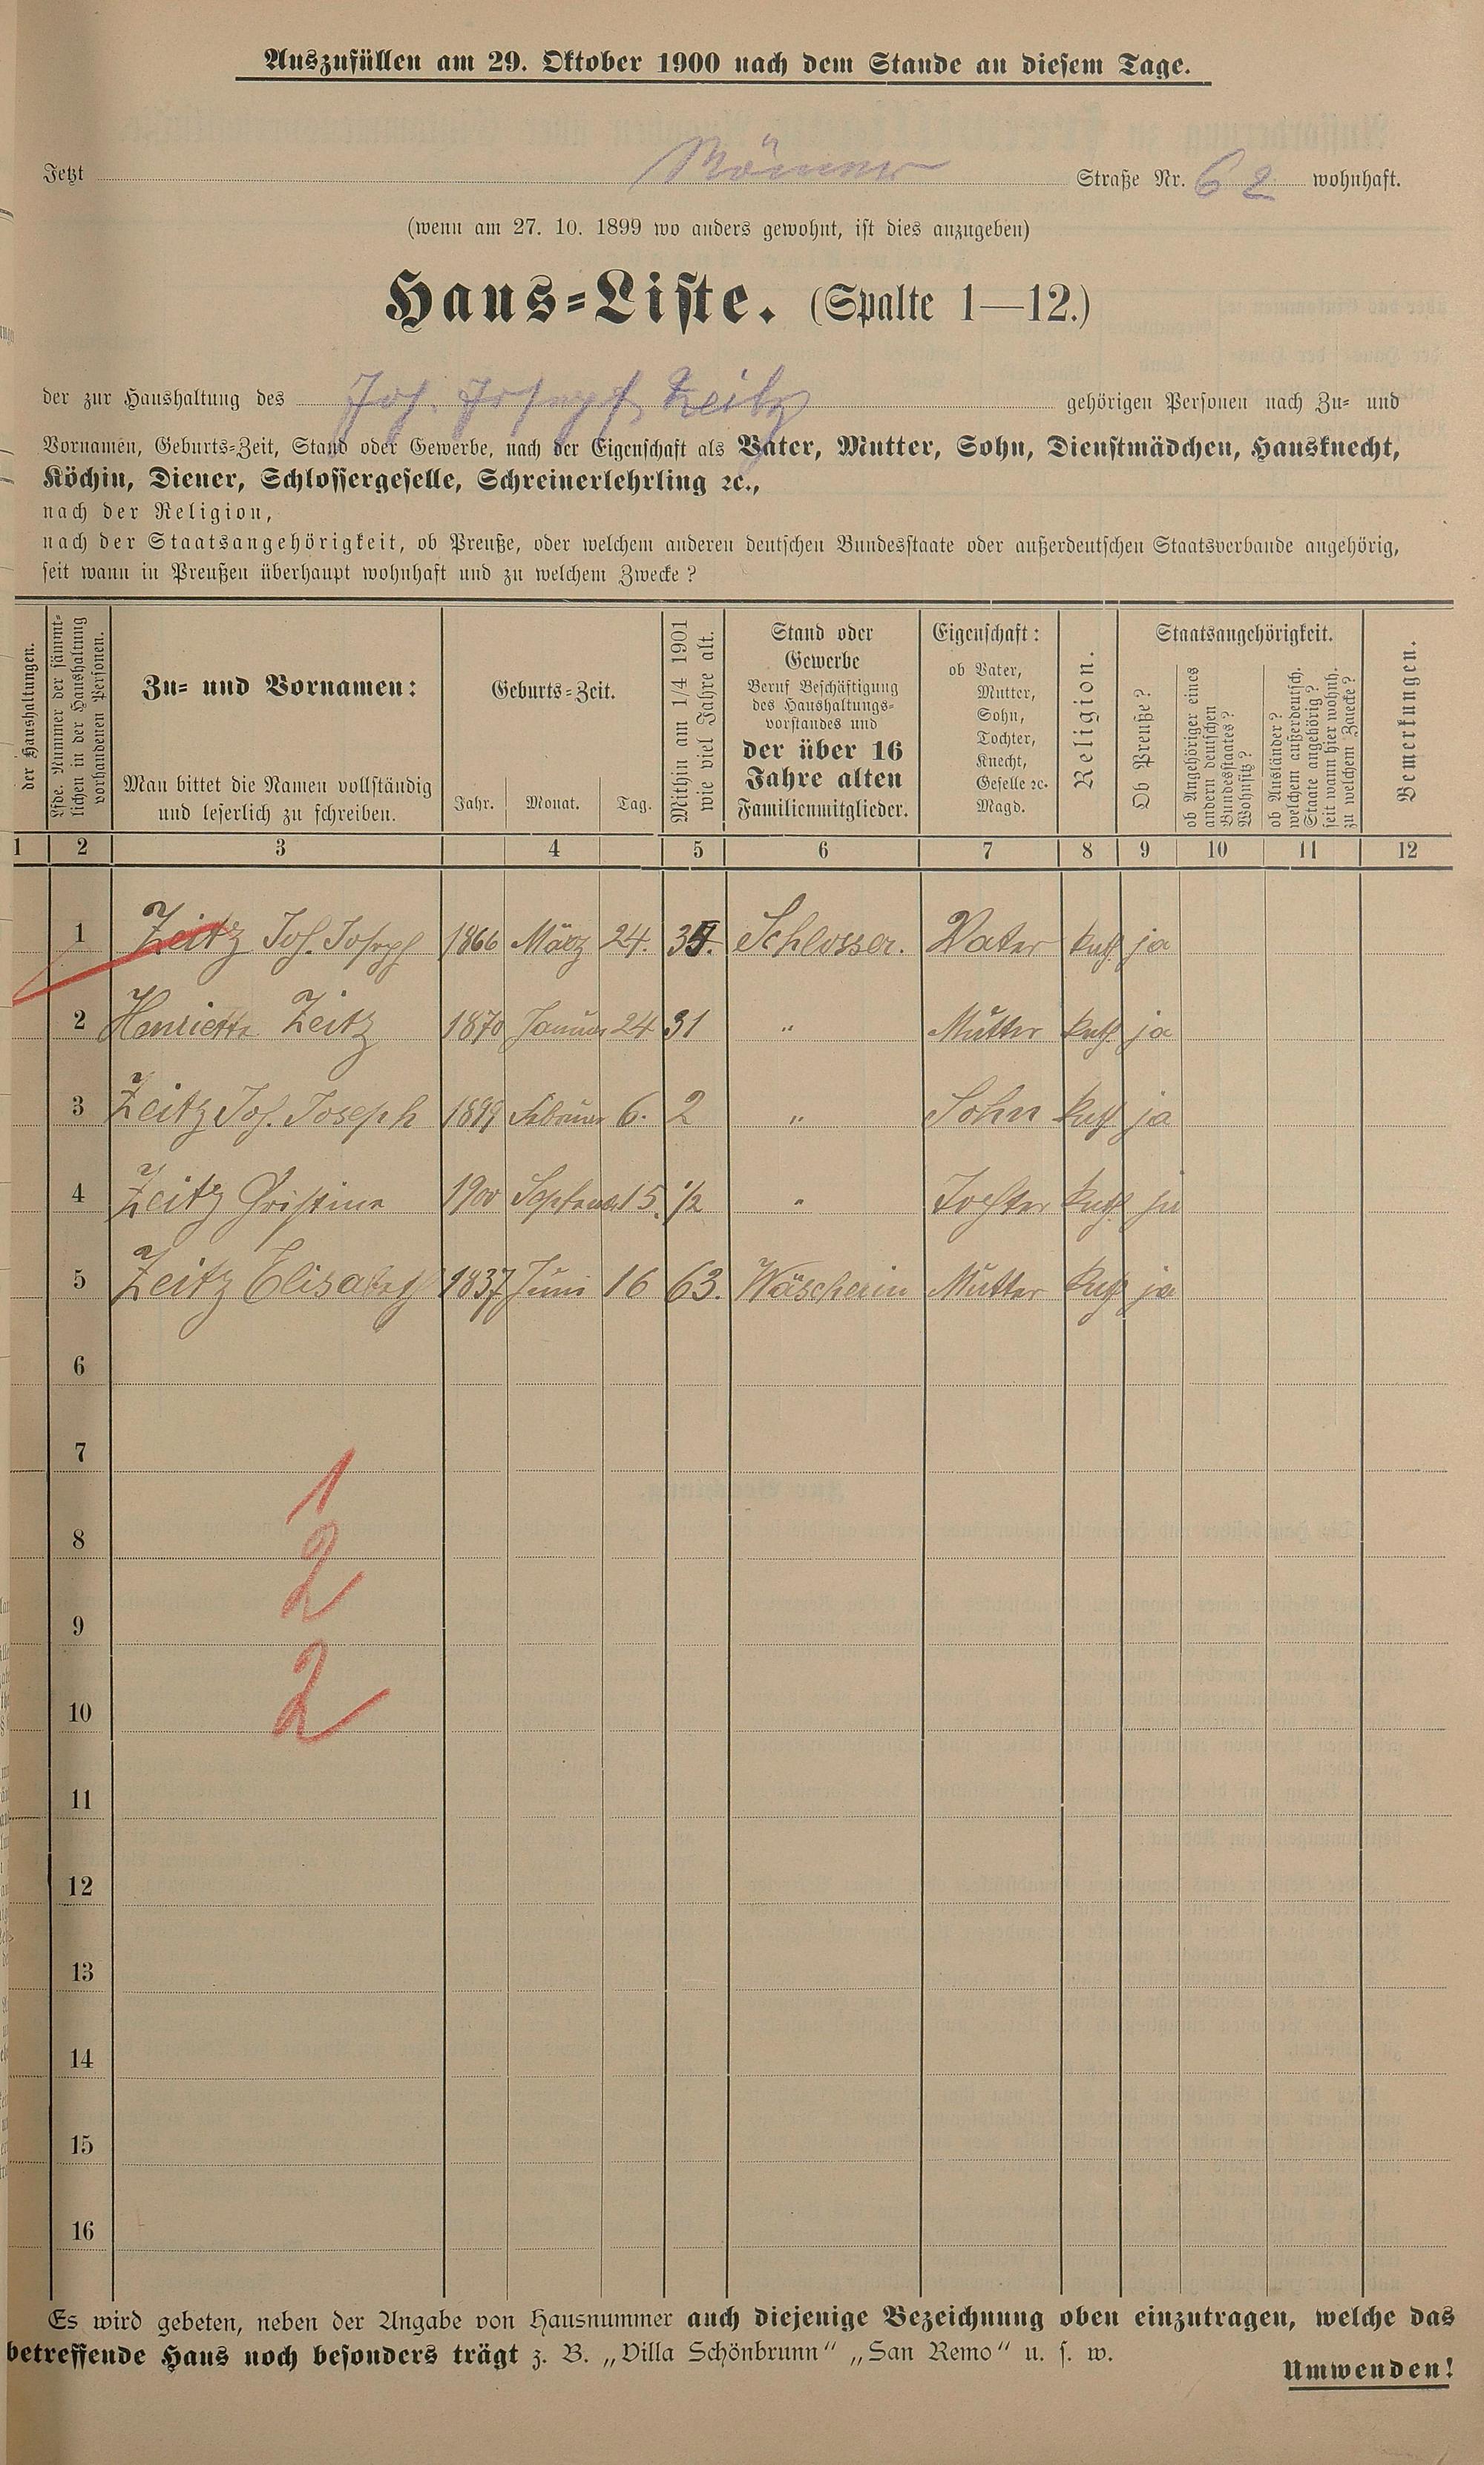 Auszufüllen am 29. Oktober 1900 nach dem Stande an diesem Tage.
Jetzt Römer Straße Nr. 62 wohnhaft.
(wenn am 27. 10. 1899 wo anders gewohnt, ist dies anzugeben)
Haus-Liste. (Spalte 1—12.)
der zur Haushaltung des Joh. Joseph Zeitz gehörigen Personen nach Zu- und
Vornamen, Geburts-Zeit, Stand oder Gewerbe, nach der Eigenschaft als Vater, Mutter, Sohn, Dienstmädchen, Hausknecht,
Köchin, Diener, Schlossergeselle, Schreinerlehrling ꝛc.,
nach der Religion,
nach der Staatsangehörigkeit, ob Preuße, oder welchem anderen deutschen Bundesstaate oder außerdeutschen Staatsverbande angehörig,
seit wann in Preußen überhaupt wohnhaft und zu welchem Zwecke?
der Haushaltungen.
Lfde. Nummer der sämmt-
lichen in der Haushaltung
vorhandenen Personen.
Zu- und Vornamen:
Man bittet die Namen vollständig
und leserlich zu schreiben.
Geburts-Zeit.
Jahr. Monat. Tag.
Mithin am 1/4 1901
wie viel Jahre alt.
Stand oder
Gewerbe
Beruf Beschäftigung
des Haushaltungs-
vorstandes und
der über 16
Jahre alten
Familienmitglieder.
Eigenschaft:
ob Vater,
Mutter,
Sohn,
Tochter,
Knecht,
Geselle ꝛc.
Magd.
Religion.
Staatsangehörigkeit.
Ob Preuße?
ob Angehöriger eines
andern deutschen
Bundesstaates?
Wohnsitz?
ob Ausländer?
welchem außerdeutsch.
Staate angehörig?
seit wann hier wohnh.
zu welchem Zwecke?
Bemerkungen.
1 2 3 4 5 6 7 8 9 10 11 12
1 Zeitz Joh. Joseph 1866 März 24. Schlosser. Vater kath ja
2 Henriette Zeitz 1870 Januar 24 31 " Mutter kath. ja
3 Zeitz Joh. Joseph 1899 Februar 6. 2 " Sohn kath ja
4 Zeitz Christina 1900 September 15. 1/2 " Tochter kath. ja
5 Zeitz Elisabeth 1837 Juni 16 63. Wäscherin Mutter kath ja
6
7
1
8
2
9
2
10
11
12
13
14
15
16
Es wird gebeten, neben der Angabe von Hausnummer auch diejenige Bezeichnung oben einzutragen, welche das
betreffende Haus noch besonders trägt z. B. „Villa Schönbrunn“ „San Remo“ u. s. w.
Umwenden!